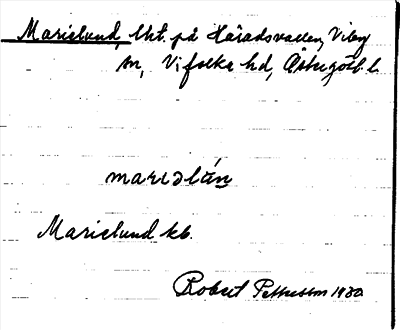 Marielund, lht. på Häradsvallen, Viby
sn, Vifolka hd, Östergötl. l.
marɩəlún
Marielund kb.
Robert Pettersson 1930